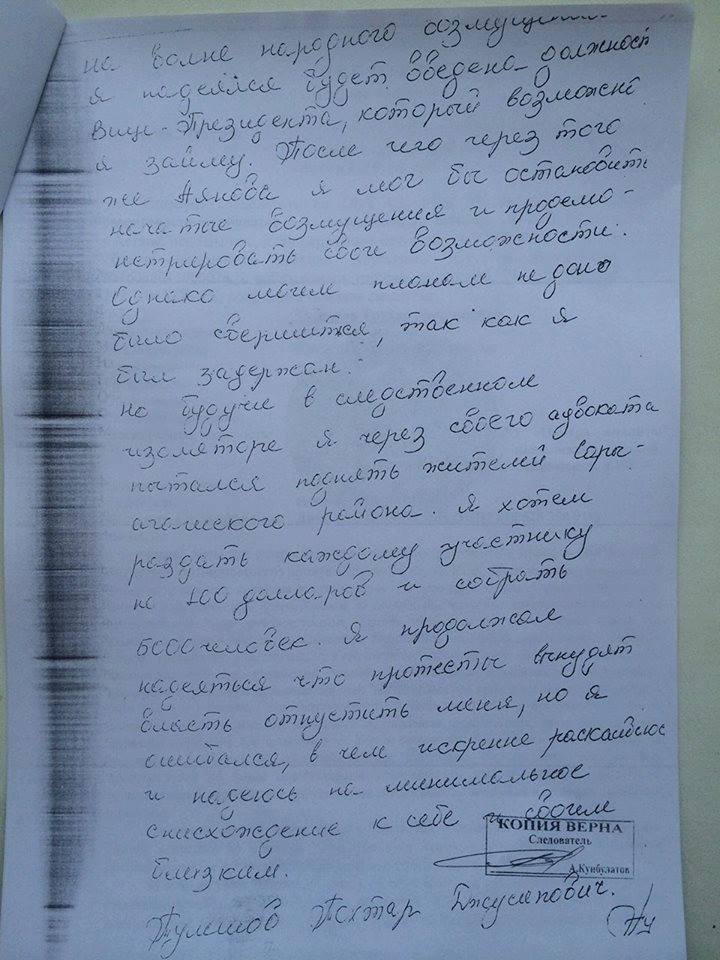 на волне народного возмущения
я надеялся будет введена должност
Вице-Президента, который возможно
я займу. После чего через того
же Аянова я мог бы остановить
начатые возмущения и продемо-
нстрировать свои возможности.
Однако моим планам не дано
было свершится, так как я
был задержан.
но будучи в следственном
изоляторе я через своего адвоката
пытался поднять жителей Сары-
агашского района. Я хотел
раздать каждому участнику
по 100 долларов и собрать
5000 человек. Я продолжал
надеяться что протесты вынудят
власть отпустить меня, но я
ошибался, в чем искренне раскаиваюс
и надеюсь на минимальное
снисхождение к себе и своим
близким.
КОПИЯ ВЕРНА
Следователь
А.Куибулатов
Тулешов Тохтар